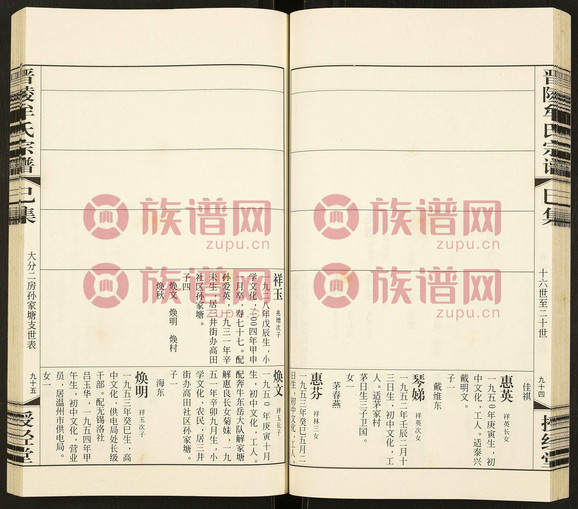 晋陵牟氏宗谱
巳集
十六世至二十世
九十四
授经堂
佳祺
惠英 祥英长女
一九五〇年庚寅生，初
中文化，工人。适泰兴
戴明文。
子一
戴维东
琴娣 祥英次女
一九五二年壬辰二月十
三日生，初中文化，工
人。适茗家村
茅日章之子卫国。
女一
茅春燕
惠芬 祥林三女
一九五三年癸巳五月二
祥玉 兆增次子
一九二八年戊辰生，小
学文化，2004年甲申
月卒，寿七十七。配
孙爱英，一九三一年辛
未生，居三井街办高田
社区孙家塘。
子四
焕文 焕明 焕村
焕秋
焕文 祥玉长子
一九五〇年庚寅十月
生，初中文化，工人。
配奔牛东岳大队解家塘
解惠良长女菊妹，一九
五一年辛卯九月生，小
学文化，农民，居三井
街办高田社区孙家塘。
子一
海东
焕明 祥玉次子
一九五三年癸巳生，高
中文化，供电局处长级
干部。配无锡洛社
吕玉华，一九五四年甲
午生，初中文化，营业
员，居温州市供电局。
晋陵牟氏宗谱
巳集
大分二房孙家塘支世表
九十五
授经堂
族谱网
zupu.cn
族谱网
zupu.cn